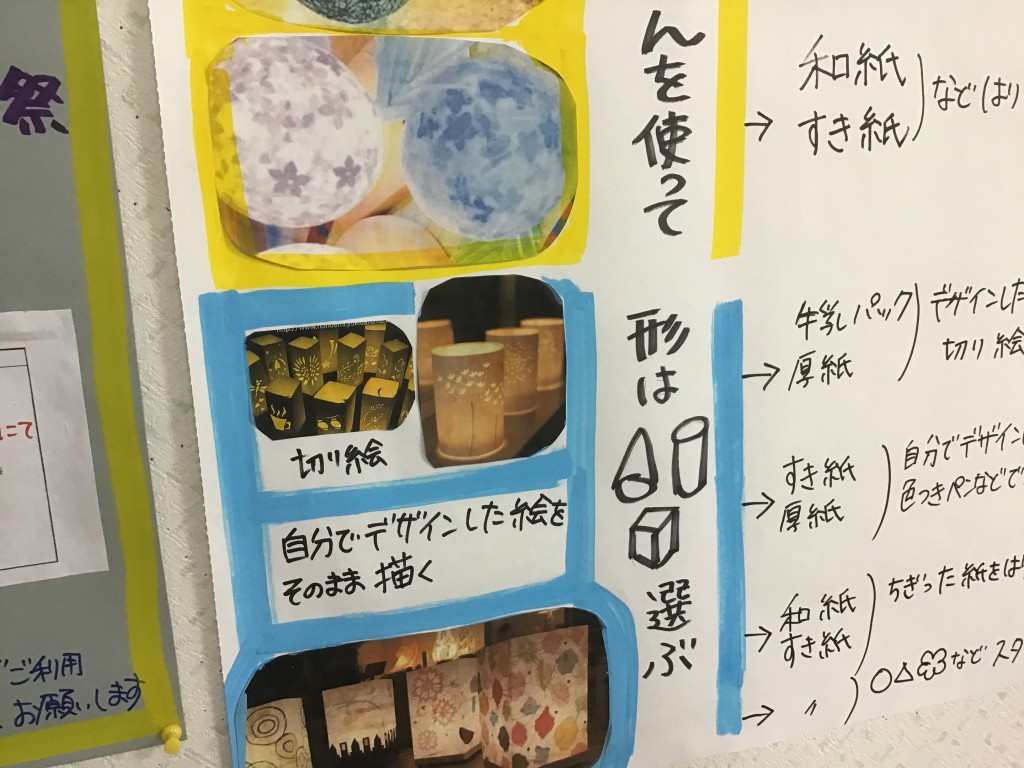 祭
にて
ご利用
お願いします
んを使って
和紙
すき紙
など はり
切り絵
自分でデザインした絵を
そのまま描く
形は
選ぶ
牛乳パック
厚紙
デザインした
切り絵
すき紙
厚紙
自分でデザイン
色つきペンなどで
和紙
すき紙
ちぎった紙をは
〃
○△など スタ